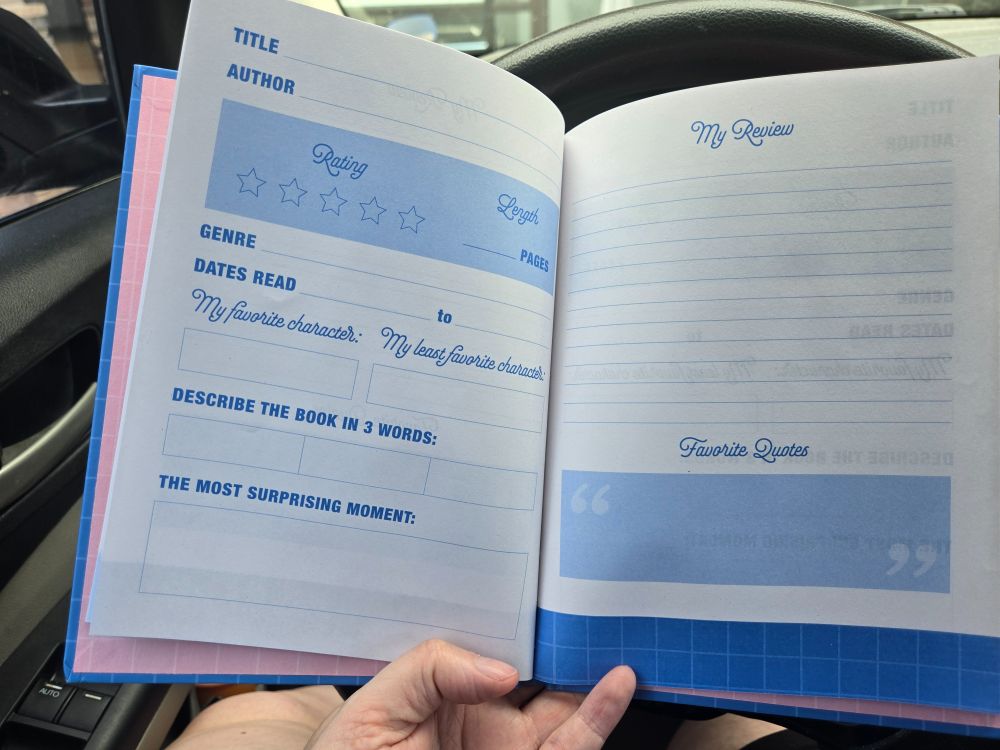 TITLE
AUTHOR
Rating
Length
PAGES
GENRE
DATES READ to
My favorite character:
My least favorite character:
DESCRIBE THE BOOK IN 3 WORDS:
THE MOST SURPRISING MOMENT:
My Review
Favorite Quotes
“
”
AUTO